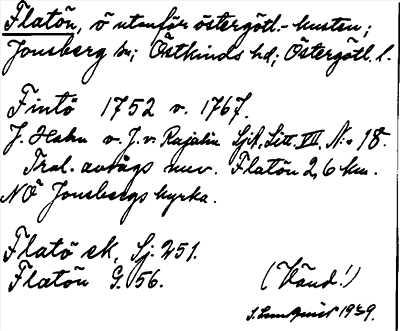 Flatön, ö utanför östergötl.-kusten;
Jonsberg sn; Östkinds hd; Östergötl. l.
Fintö 1752 v. 1767.
J. Hahn o. J. v. Rajalin Sjk, Litt. VII, N:o 18.
Trol. avsågs nuv. Flatön 2,6 km.
NÖ Jonsbergs kyrka.
Flatö sk, Sj: 251.
Flatön G. 56.
(Vänd!)
S. Lundquist 1939.